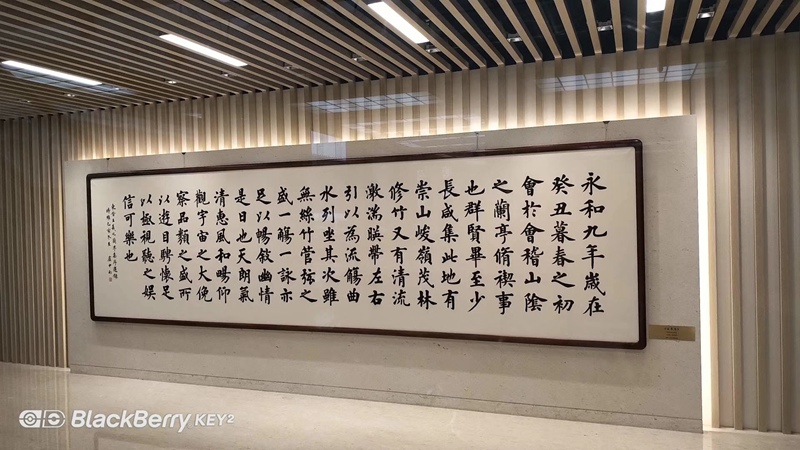 永和九年歲在
癸丑暮春之初
會於會稽山陰
之蘭亭脩禊事
也群賢畢至少
長咸集此地有
崇山峻嶺茂林
修竹又有清流
激湍暎帶左右
引以為流觴曲
水列坐其次雖
無絲竹管弦之
盛一觴一詠亦
足以暢敘幽情
是日也天朗氣
清惠風和暢仰
觀宇宙之大俛
察品類之盛所
以遊目騁懷足
以極視聽之娛
信可樂也
BlackBerry KEY²